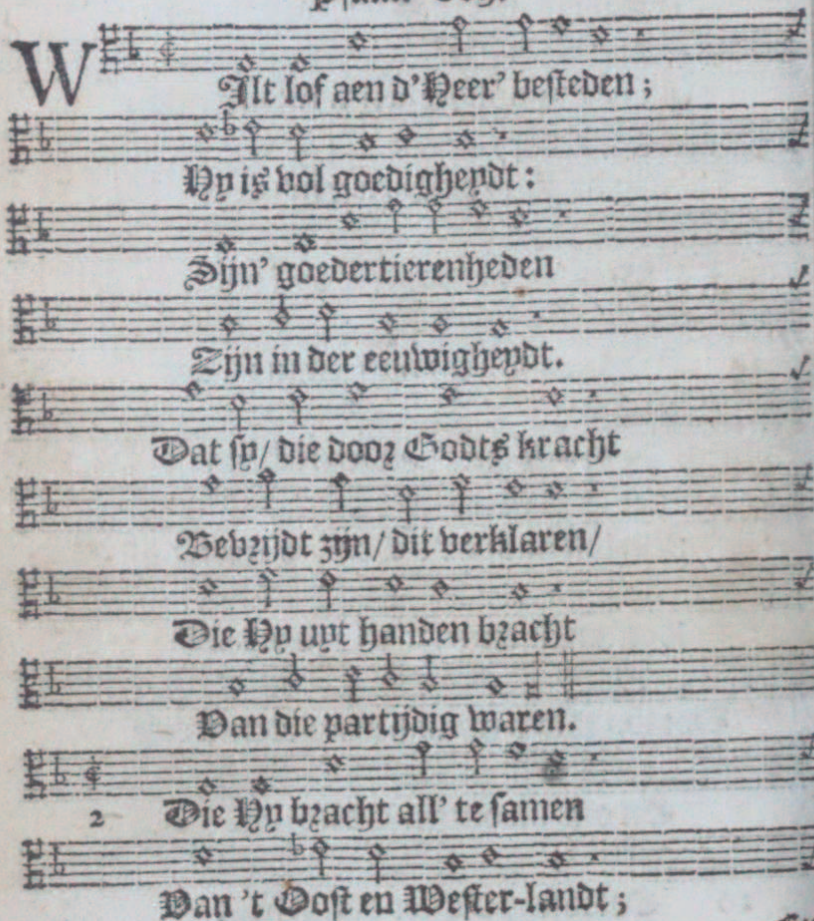 WIlt lof aen d'Heer' besteden;
Hy is vol goedigheydt:
Sijn' goedertierenheden
Zijn in der eeuwigheydt.
Dat sy/ die door Godts kracht
Bevrijdt zijn/ dit verklaren/
Die Hy uyt handen bracht
Van die partijdig waren.
2 Die Hy bracht all' te samen
Van 't Oost en Wester-landt;